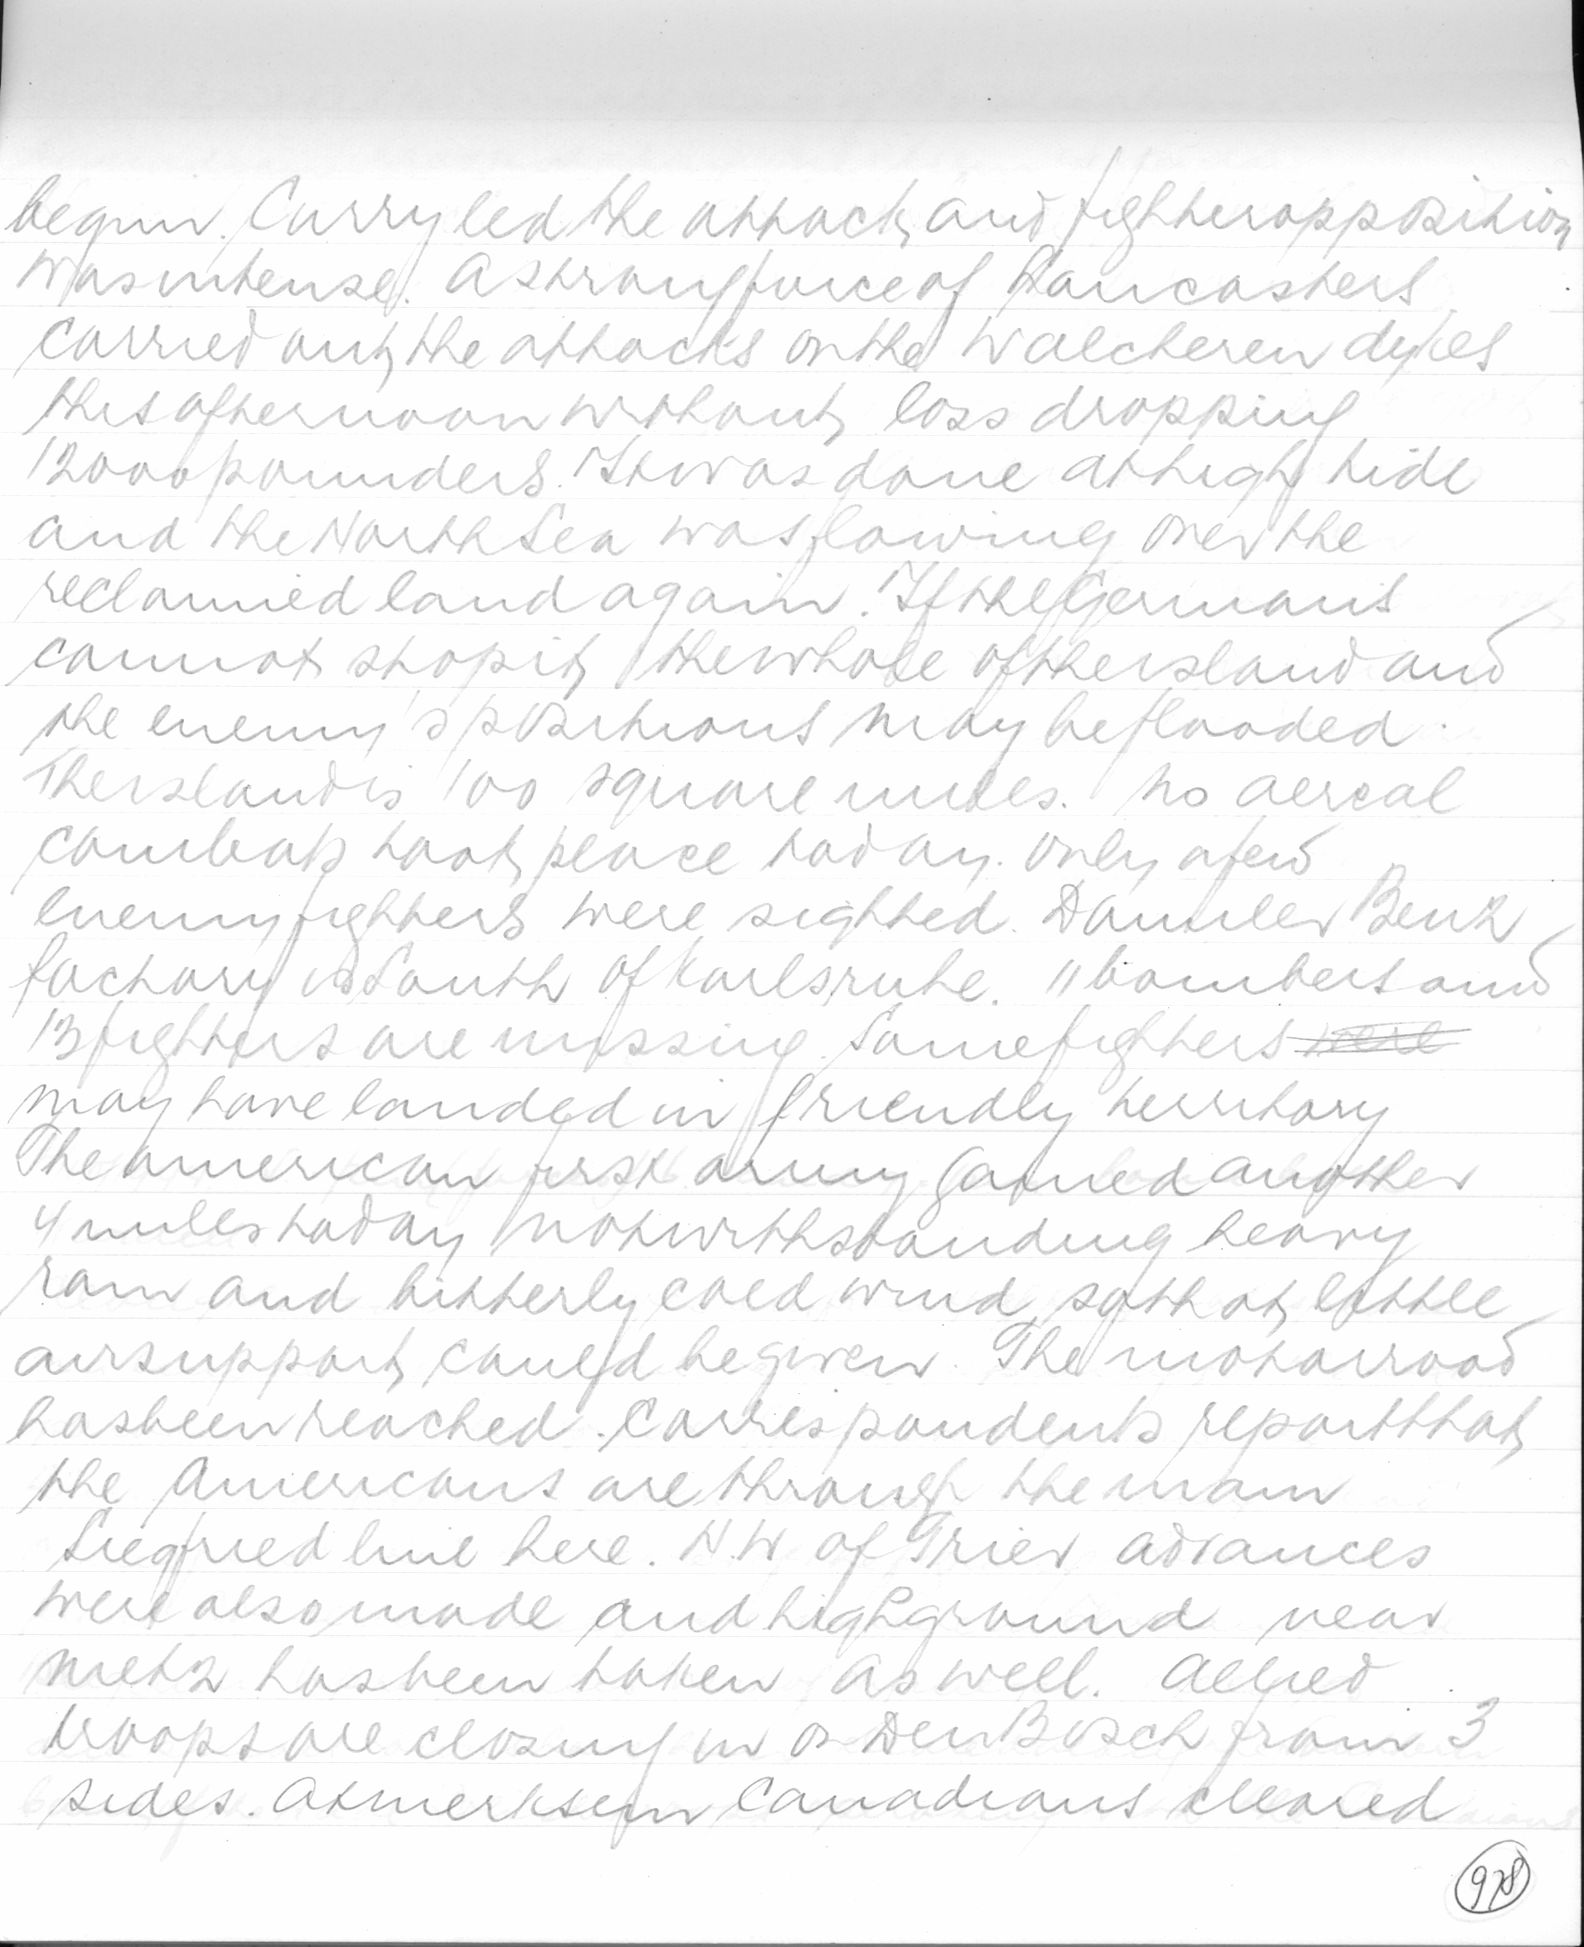 begun. Curry led the attack and fighter opposition
was intense. A strong force of Lancasters
carried out the attacks on the Walcheren dykes
this afternoon without loss dropping
12000 pounders. It was done at high tide
and the North Sea was flowing over the
reclaimed land again. If the Germans
cannot stop it the whole of the island and
the enemy's positions may be flooded.
The island is 100 square miles. No aereal
combats took place today. Only a few
enemy fighters were sighted. Daimler Benz
factory is South of Karlsruhe. 11 bombers and
13 fighters are missing. Some fighters were
may have landed in friendly territory
The American first army gained another
4 miles today notwithstanding heavy
rain and bitterly cold wind so that little
airsupport could be given. The motorroad
has been reached. Correspondents report that
the Americans are through the main
Siegfried line here. N.W of Trier advances
were also made and high ground near
Metz has been taken as well. Allied
troops are closing in on Den Bosch from 3
sides. At Merksem Canadians cleared
978